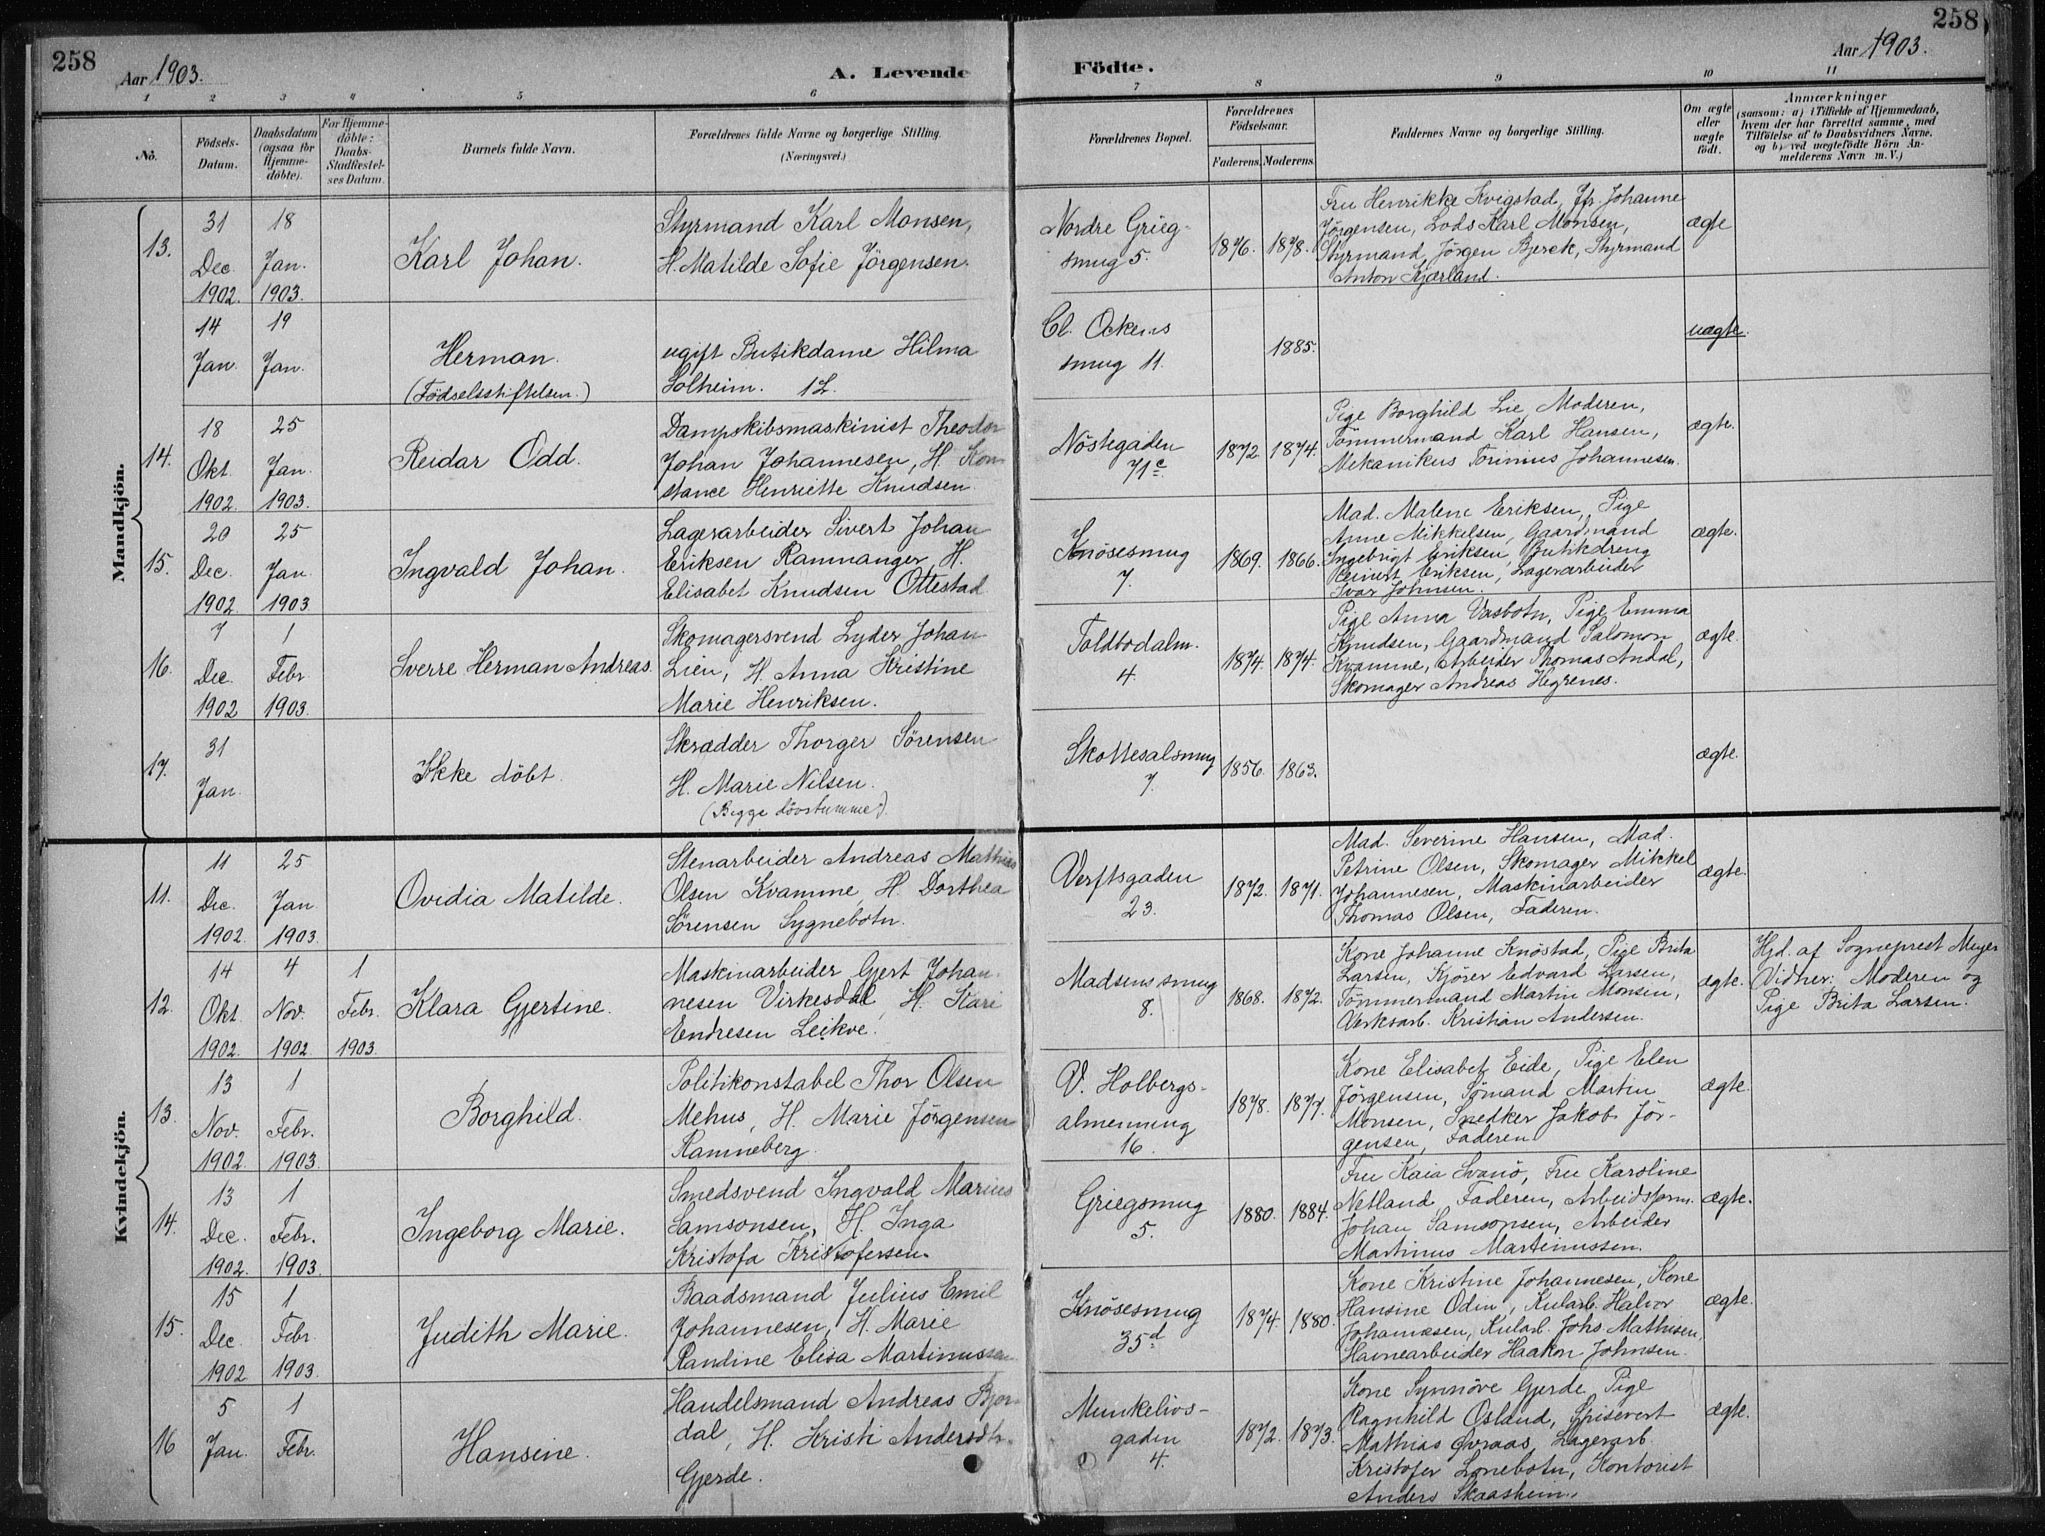 258
Aar 1903.
A. Levende
Födte.
Aar 1903.
258
1 2 3 4 5 6 7 8 9 10 11
No.
Födsels-
Datum.
Daabsdatum
(ogsaa for
Hjemme-
døbte).
For Hjemme-
döbte:
Daabs-
Stadfæstel-
ses Datum.
Barnets fulde Navn.
Forældrenes fulde Navne og borgerlige Stilling.
(Næringsvei.)
Forældrenes Bopæl.
Forældrenes
Födselsaar.
Faderens. Moderens.
Faddernes Navne og borgerlige Stilling.
Om ægte
eller
uægte
födt.
Anmærkninger
(saasom: a) i Tilfælde af Hjemmedaab,
hvem der har forrettet samme, med
Tilföielse af to Daabsvidners Navne.
og b) ved uægtefödte Börn An-
melderens Navn m. V.)
Mandkjön.
13.
31
Dec.
1902.
18
Jan.
1903.
Karl Johan.
Styrmand Karl Monsen,
H. Matilde Sofie Jörgensen.
Nordre Grieg-
smug 5.
1876. 1878.
Fru Henrikke Kvigstad, Jfr. Johanne
Jörgensen, Lods Karl Monsen,
Styrmand Jörgen Bjerck, Styrmand
Anton Kjærland.
ægte
14
Jan.
19
Jan.
Herman.
(Födselsstiftelsen.)
ugift Butikdame Hilma
Solheim. 1L.
Cl. Ockens
smug 11.
1885.
uægte.
14.
18
Okt.
1902.
25
Jan.
1903.
Reidar Odd.
Dampskibsmaskinist Theodor
Johan Johannesen, H. Kon
stance Henriette Knudsen
Nöstegaden
71c.
1872. 1874.
Pige Borghild Lie, Moderen,
Tömmermand Karl Hansen,
Mekanikus Torinius Johannesen.
ægte.
15.
20
Dec.
1902
25
Jan.
1903
Ingvald Johan.
Lagerarbeider Sivert Johan
Eriksen Ramnanger H.
Elisabet Knudsen Ottestad
Knösesmug
7.
1869. 1866.
Mad. Malene Eriksen, Pige
Anne Mikkelsen, Gaardmand
Ingebrigt Eriksen, Butikdreng
Reinert Eriksen, Lagerarbeider
Ivar Johnsen.
ægte.
16.
7
Dec.
1902
1
Febr
1903.
Sverre Herman Andreas.
Skomagersvend Lyder Johan
Lien, H. Anna Kristine
Marie Henriksen.
Toldbodalm.
4.
1874. 1874.
Pige Anna Vasbotn, Pige Emma
Knudsen, Gaardmand Salomon
Kvamme, Arbeider Thomas Andal,
Skomager Andreas Hegrenes.
ægte.
17.
31
Jan.
Ikke döbt.
Skrædder Thorger Sörensen
H. Marie Nilsen.
(Begge dövstumme.)
Skottesalsmug
7.
1856. 1863.
ægte.
Kvindekjön.
11.
11
Dec.
1902.
25
Jan
1903.
Ovidia Matilde.
Stenarbeider Andreas Mathias
Olsen Kvamme, H. Dorthea
Sörensen Sygnebotn.
Verftsgaden
23.
1872. 1871.
Mad. Severine Hansen, Mad.
Petrine Olsen, Skomager Mikkel
Johannesen, Maskinarbeider
Thomas Olsen, Faderen.
ægte
12.
14
Okt.
1902.
4
Nov.
1902
1
Febr.
1903.
Klara Gjertine.
Maskinarbeider Gjert Johan-
nesen Virkesdal, H. Kari
Endresen Leikve.
Madsens smug
8.
1868. 1872.
Kone Johanne Knöstad, Pige Brita
Larsen, Kjörer Edvard Larsen,
Tömmermand Martin Monsen,
Verksarb. Kristian Andersen.
ægte.
Hjd. af Sogneprest Meyer
Vidner: Moderen og
Pige Brita Larsen.
13.
13
Nov.
1902
1
Febr.
1903.
Borghild.
Politikonstabel Thor Olsen
Mehus, H. Marie Jörgensen
Ramneberg
V. Holbergs-
almenning
16.
1878. 1877.
Kone Elisabet Eide, Pige Elen
Jörgensen, Sömand Martin
Monsen, Snedker Jakob Jör-
gensen, Faderen
ægte.
14.
13
Dec.
1902.
1
Febr.
1903.
Ingeborg Marie.
Smedsvend Ingvald Marius
Samsonsen, H. Inga
Kristofa Kristofersen.
Griegsmug
5.
1880. 1884.
Fru Kaia Svanö, Fru Karoline
Netland, Faderen, Arbeidsform.
Johan Samsonsen, Arbeider
Martinus Martinussen.
ægte.
15.
15
Dec.
1902
1
Febr.
1903.
Judith Marie.
Baadsmand Julius Emil
Johannesen, H. Marie
Randine Elisa Martinussen
Knösesmug
35d
1874. 1880.
Kone Kristine Johannesen, Kone
Hansine Odin, Kularb. Halvor
Johannesen, Kularb. Johs Mathisen,
Havnearbeider Haakon Johnsen.
ægte.
16
5
Jan.
1
Febr.
Hansine.
Handelsmand Andreas Bjor
dal, H. Kristi Andersdtr.
Gjerde.
Munkelivs-
gaden
4.
1872. 1873.
Kone Synnöve Gjerde, Pige
Ragnhild Osland, Spisevert
Mathias Øvraas, Lagerarb.
Kristofer Lonebotn, Kontorist
Anders Skaasheim.
ægte.